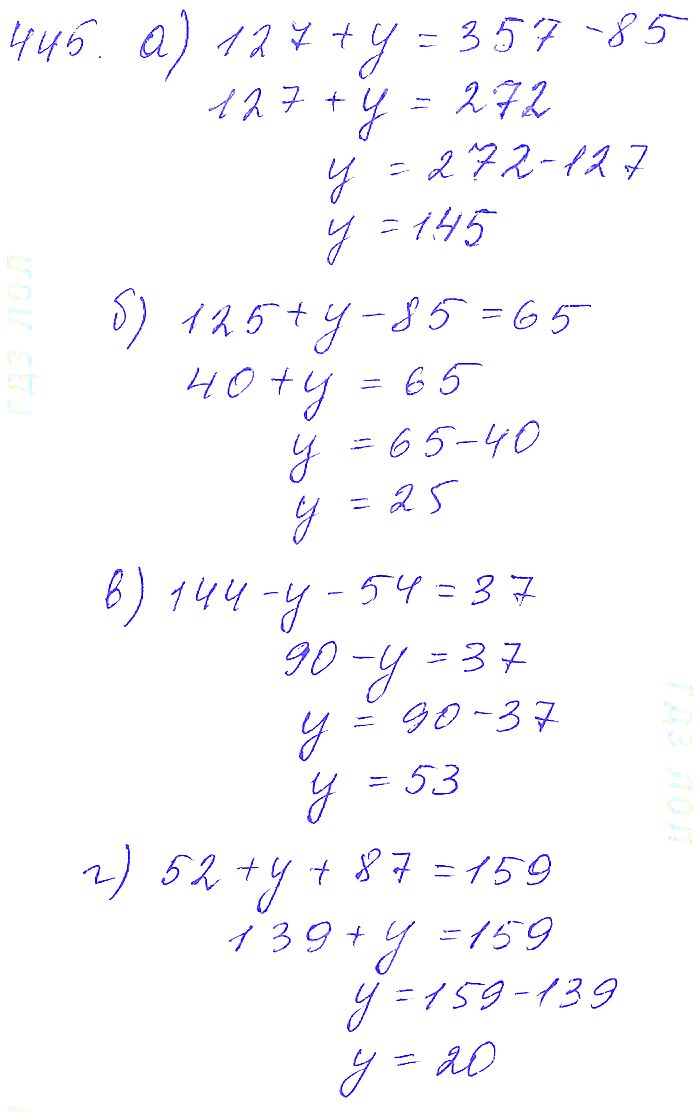 445. а) 127 + y = 357 - 85
127 + y = 272
y = 272 - 127
y = 145
б) 125 + y - 85 = 65
40 + y = 65
y = 65 - 40
y = 25
в) 144 - y - 54 = 37
90 - y = 37
y = 90 - 37
y = 53
г) 52 + y + 87 = 159
139 + y = 159
y = 159 - 139
y = 20
гдз лол
гдз лол